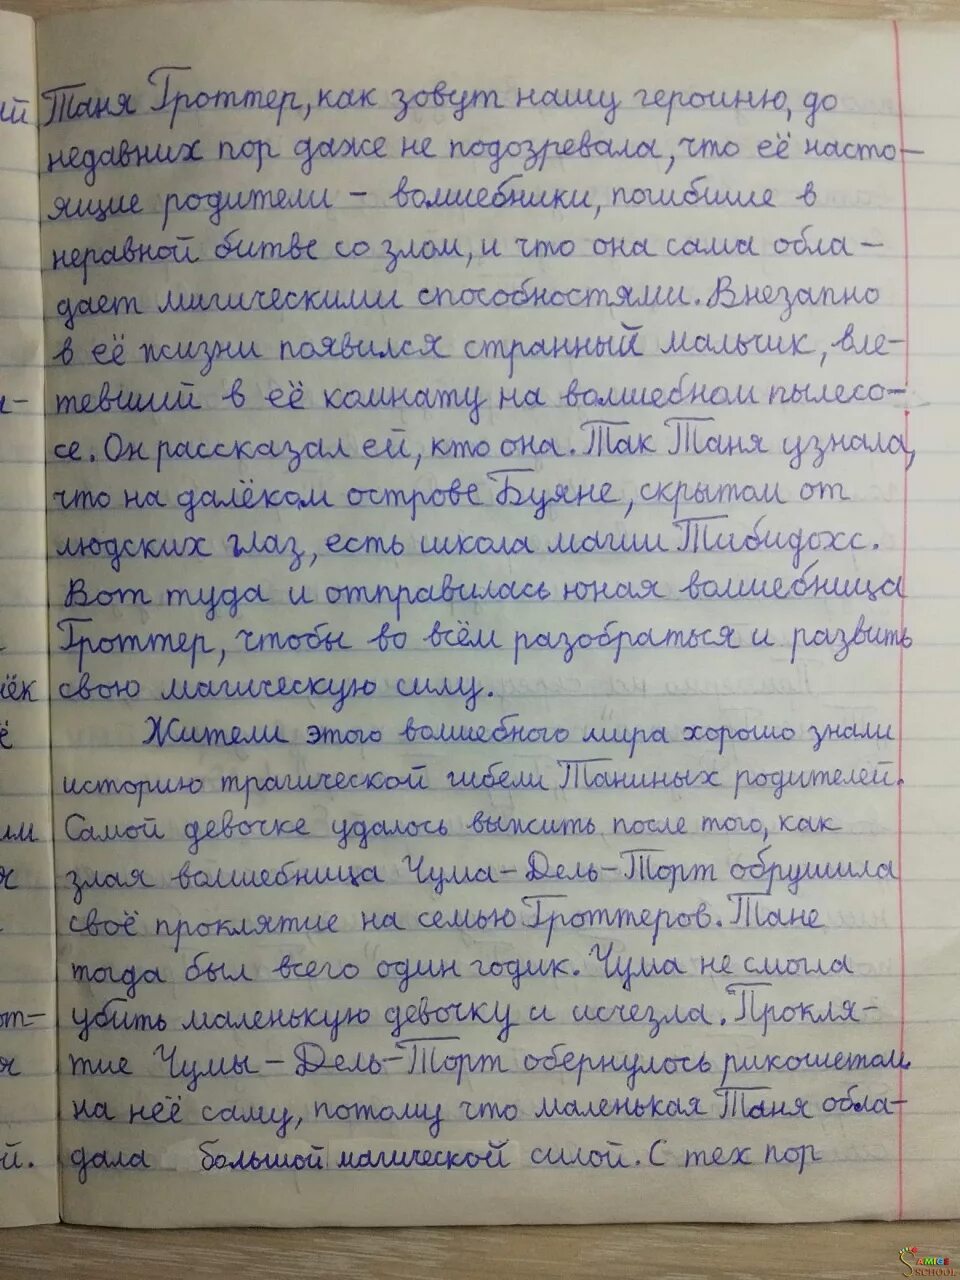 ий
Таня Гроттер, как зовут нашу героиню, до
недавних пор даже не подозревала, что её насто-
ящие родители – волшебники, погибшие в
неравной битве со злом, и что она сама обла-
дает магическими способностями. Внезапно
в её жизни появился странный мальчик, вле-
тевший в её комнату на волшебном пылесо-
се. Он рассказал ей, кто она. Так Таня узнала,
что на далёком острове Буяне, скрытом от
людских глаз, есть школа магии Тибидохс.
Вот туда и отправилась юная волшебница
Гроттер, чтобы во всём разобраться и развить
ёк
свою магическую силу.
ё
Жители этого волшебного мира хорошо знали
историю трагической гибели Таниных родителей.
Самой девочке удалось выжить после того, как
злая волшебница Чума-Дель-Торт обрушила
своё проклятие на семью Гроттеров. Тане
тогда был всего один годик. Чума не смогла
от-
убить маленькую девочку и исчезла. Прокля-
я
тие Чумы-Дель-Торт обернулось рикошетом
на неё саму, потому что маленькая Таня обла-
й.
дала большой магической силой. С тех пор
AMIGE
SCHOOL